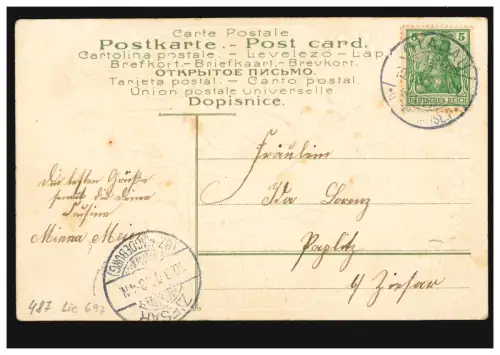 Carte Postale.
Postkarte. - Post card.
Cartolina postale. - Levelező-Lap.
Brefkort.-Briefkaart.-Brevkort.
ОТКРЫТОЕ ПИСЬМО.
Tarjeta postal. - Carto postal.
Union postale universelle.
Dopisnice.
5 5
DEUTSCHES REICH
Fräulein
Ida Lorenz
Paplitz
b/ Ziesar
Die besten Grüße
sendet dir deine
Cousine
Minna Meier
ZIESAR
487 Lie 697